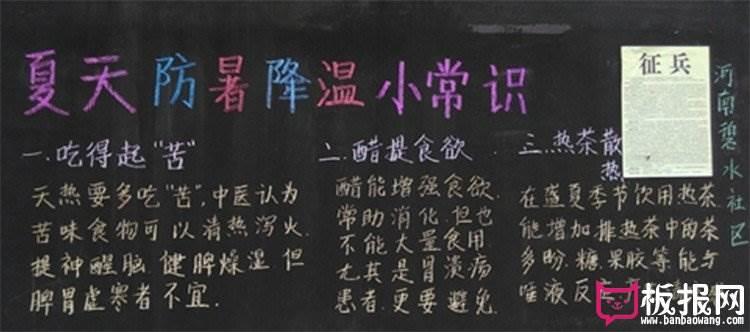 夏天防暑降温小常识
征兵
河南碧水社区
一.吃得起"苦"
天热要多吃"苦",中医认为
苦味食物可以清热泻火
提神醒脑.健脾燥湿.但
脾胃虚寒者不宜.
二.醋提食欲
醋能增强食欲.
常助消化.但也
不能大量食用
尤其是胃溃疡
患者.更要避免
三.热茶散
热
在盛夏季节饮用热茶
能增加排热茶中的茶
多酚.糖.果胶等能与
唾液反应
板报网
www.banbaowang.com